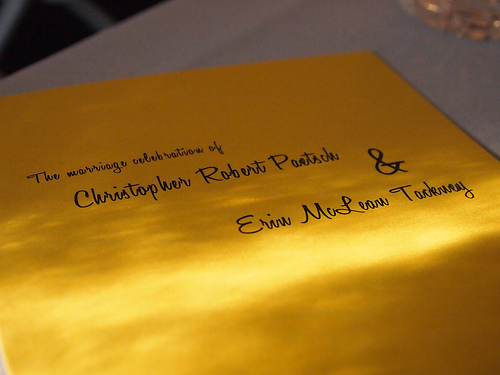 The marriage celebration of
Christopher Robert Paetsch
&
Erin McLean Tackney